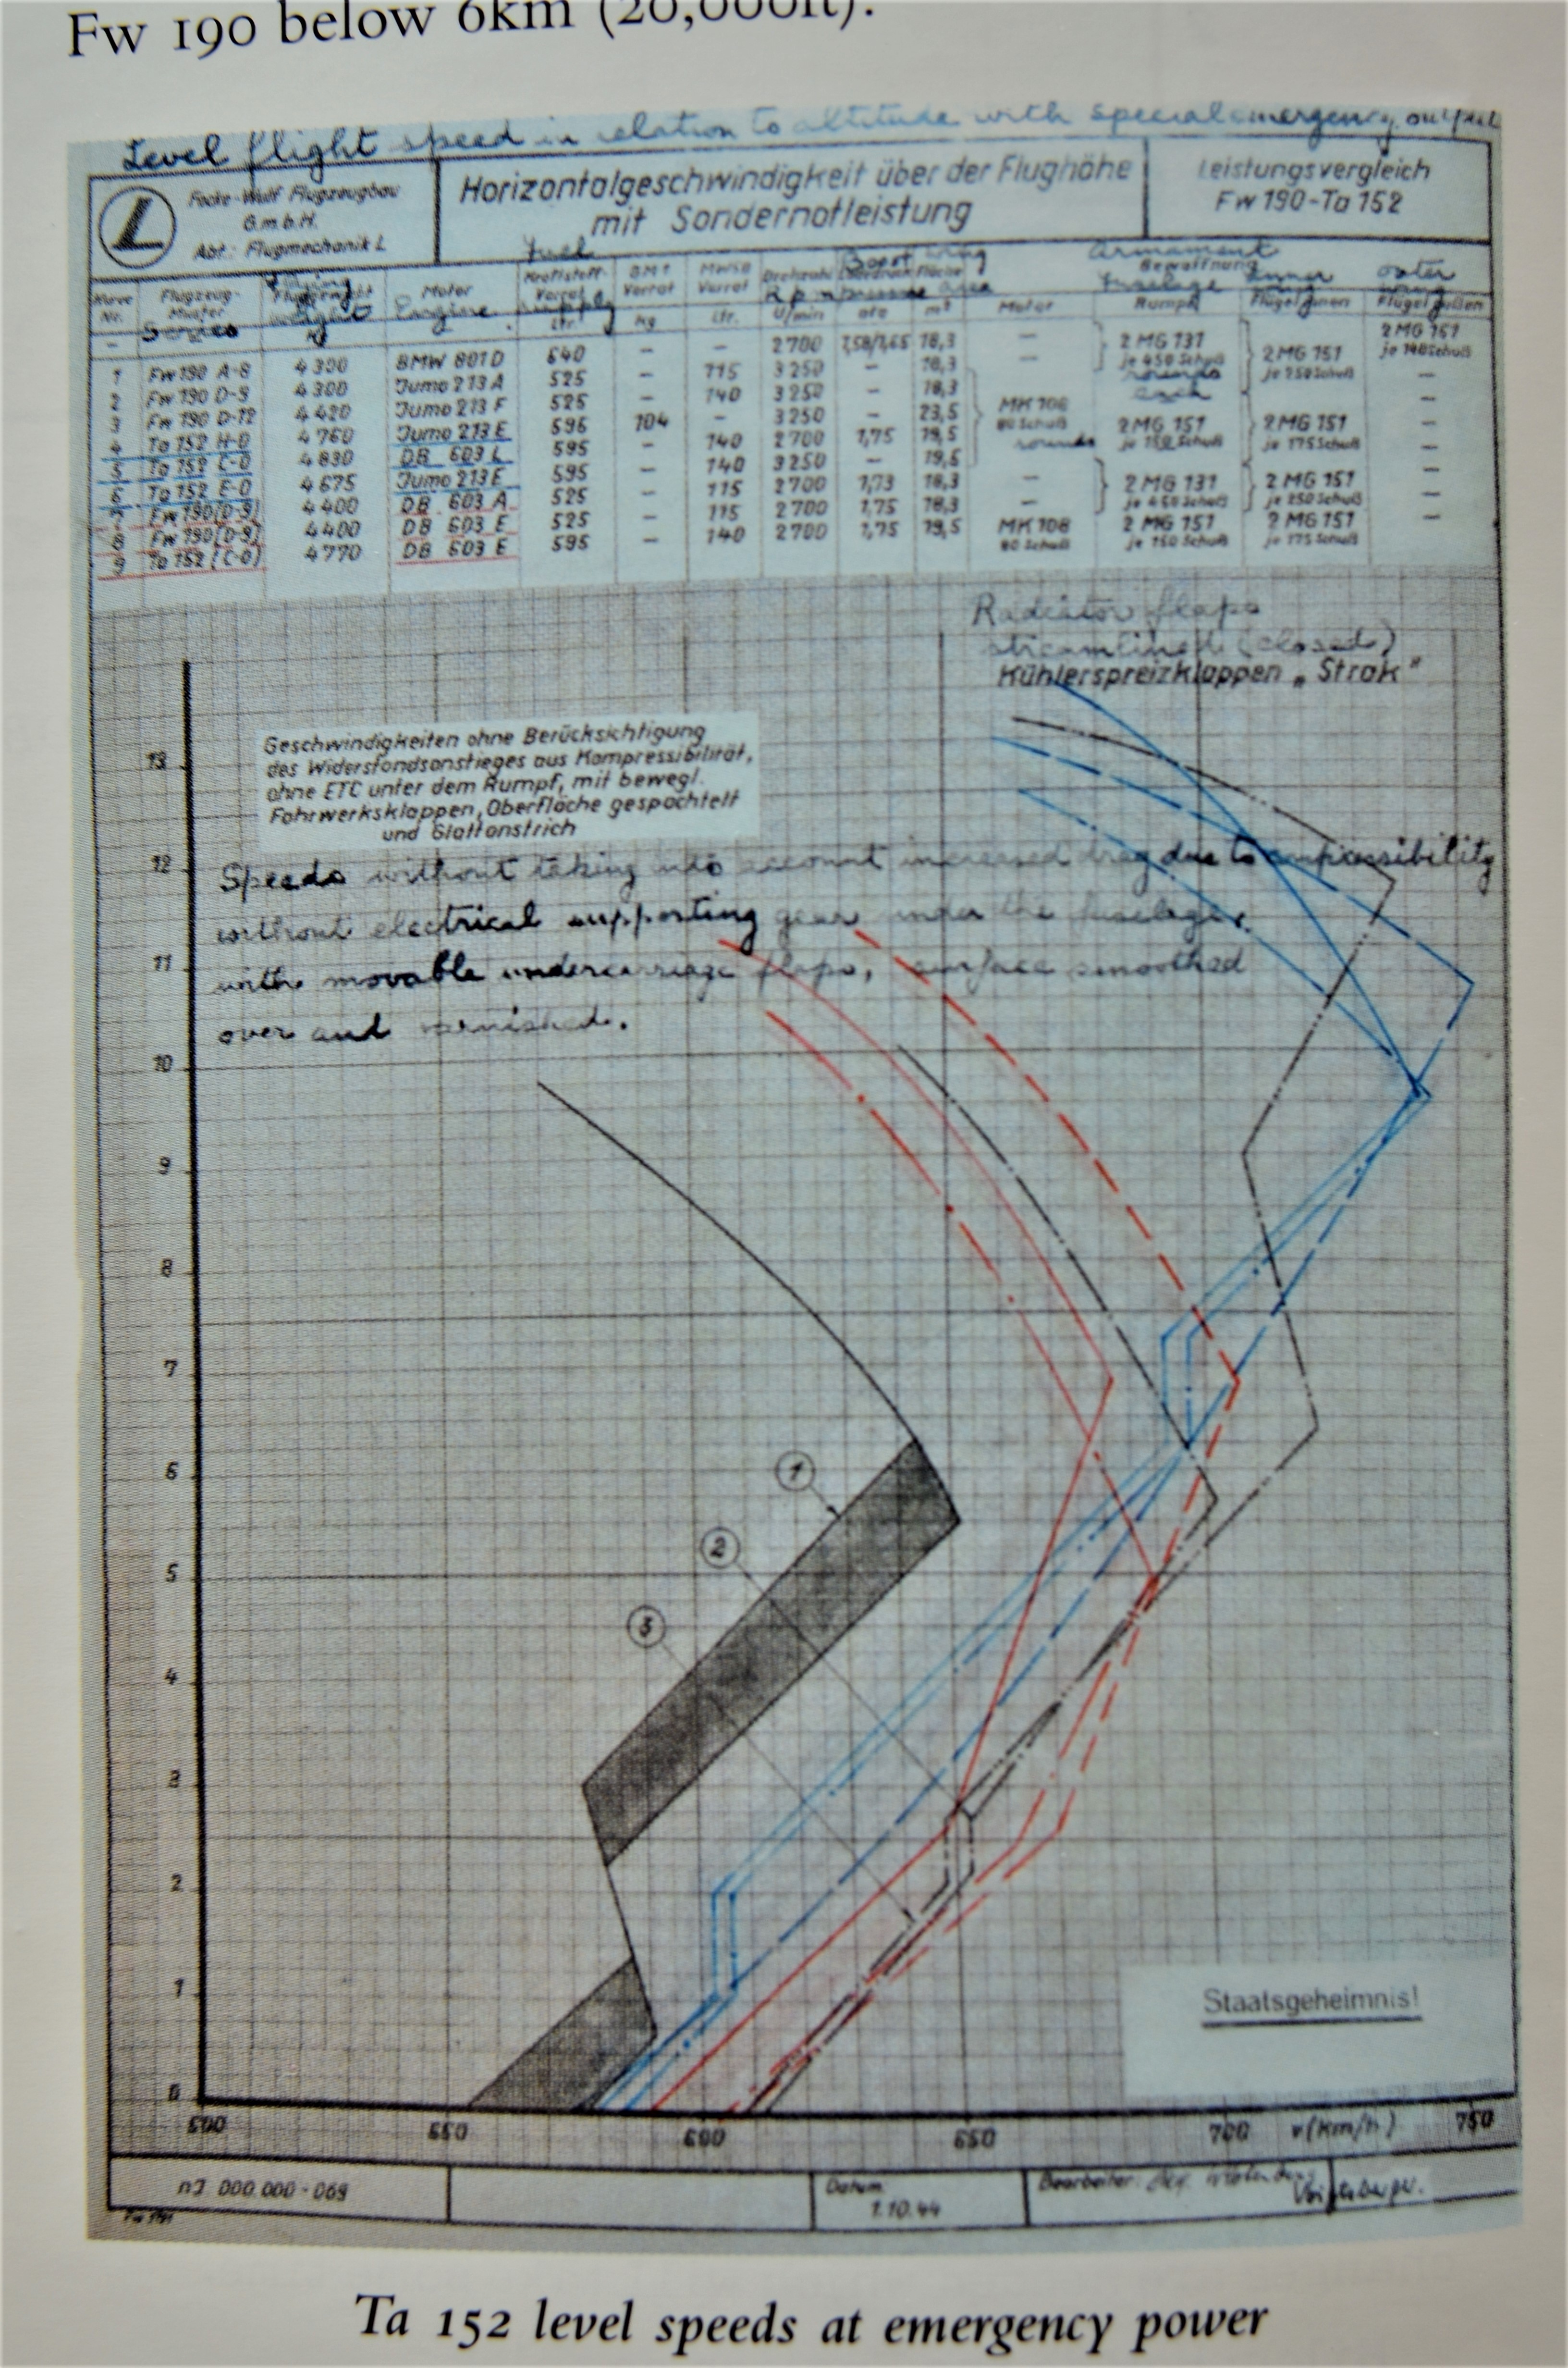 Fw 190 below 6km (20,000ft).
Level flight speed in relation to altitude with special emergency output
Focke-Wulf Flugzeugbau
G.m.b.H.
Abt.: Flugmechanik L
Horizontalgeschwindigkeit über der Flughöhe
mit Sondernotleistung
Leistungsvergleich
Fw 190-Ta 152
Fuel Boost wing Armament
Kurve Nr. Flugzeug-Muster Series weight Motor Engine Kraftstoff-Vorrat supply Ltr. GM1 Vorrat kg MW50 Vorrat Ltr. Drehzahl Rpm U/min pressure ata Fläche area m² Motor Bewaffnung Fuselage Rumpf inner wing Flügel innen outer wing Flügel außen
1 Fw 190 A-8 4300 BMW 801D 640 – – 2700 1,58/1,65 18,3 – 2 MG 131 je 450 Schuß rounds each 2 MG 151 je 250 Schuß 2 MG 151 je 140 Schuß
2 Fw 190 D-9 4300 Jumo 213 A 525 – 115 3250 – 18,3 –
3 Fw 190 D-12 4420 Jumo 213 F 525 – 140 3250 – 18,3 MK 108 80 Schuß rounds 2 MG 151 je 150 Schuß 2 MG 151 je 175 Schuß –
4 Ta 152 H-0 4760 Jumo 213 E 595 104 – 3250 – 23,5 –
5 Ta 152 C-0 4830 DB 603 L 595 – 140 2700 1,75 19,5 –
6 Ta 152 E-0 4675 Jumo 213 E 595 – 140 3250 – 19,5 –
7 Fw 190 (D-9) 4400 DB 603 A 525 – 115 2700 1,73 18,3 – 2 MG 131 je 450 Schuß 2 MG 151 je 250 Schuß –
8 Fw 190 (D-9) 4400 DB 603 E 525 – 115 2700 1,75 18,3 –
9 Ta 152 (C-0) 4770 DB 603 E 595 – 140 2700 1,75 19,5 MK 108 80 Schuß 2 MG 151 je 150 Schuß 2 MG 151 je 175 Schuß –
Radiator flaps
streamlined (closed)
Kühlerspreizklappen „Strak"
Geschwindigkeiten ohne Berücksichtigung
des Widerstandsanstieges aus Kompressibilität,
ohne ETC unter dem Rumpf, mit bewegl.
Fahrwerksklappen, Oberfläche gespachtelt
und Glattanstrich
Speeds without taking into account increased drag due to compressibility
without electrical supporting gear under the fuselage,
with movable undercarriage flaps, surface smoothed
over and varnished.
13
12
11
10
9
8
7
6
5
4
3
2
1
0
1
2
3
Staatsgeheimnis!
500 550 600 650 700 v (km/h) 750
nJ 000.000-069
Datum
1.10.44
Bearbeiter:
Ta 152 level speeds at emergency power